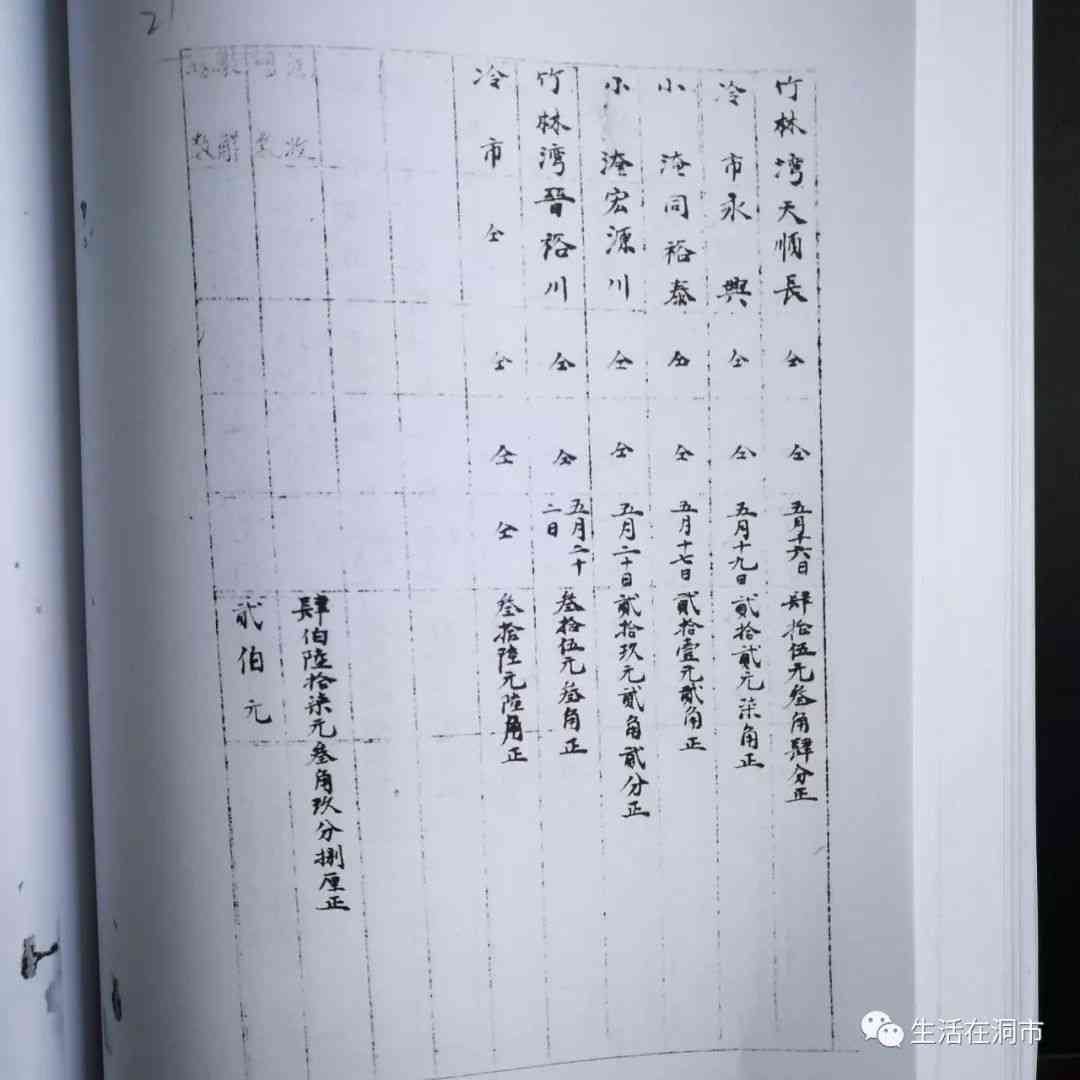 竹林湾天順長 仝 仝 五月十六日 肆拾伍元叁角肆分正
冷市永興 仝 仝 五月十九日 貳拾貳元柒角正
小淹同裕泰 仝 仝 五月十七日 貳拾壹元貳角正
小淹宏源川 仝 仝 五月二十日 貳拾玖元貳角貳分正
竹林湾晉裕川 仝 仝 五月二十二日 叁拾伍元叁角正
冷市仝 仝 仝 仝 叁拾陸元陸角正
收 肆伯陸拾柒元叁角玖分捌厘正
解 貳伯元
21
生活在洞市